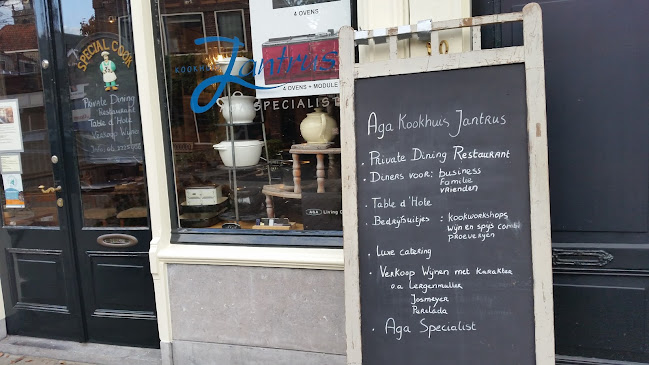 SPECIAL COOK
Private Dining
Restaurant
Table d'Hote
Verkoop Wijnen
KOOKHUIS
Jantrus
SPECIALIST
4 OVENS
4 OVENS + MODULE
AGA Living
Aga Kookhuis Jantrus
• Private Dining Restaurant
• Diners voor: business
familie
vrienden
• Table d'Hote
• Bedrijfsuitjes : kookworkshops
wijn en spijs combi
proeverijen
• Luxe catering
• Verkoop Wijnen met karakter
o.a Lergenmuller
Josmeyer
Perelada
• Aga Specialist